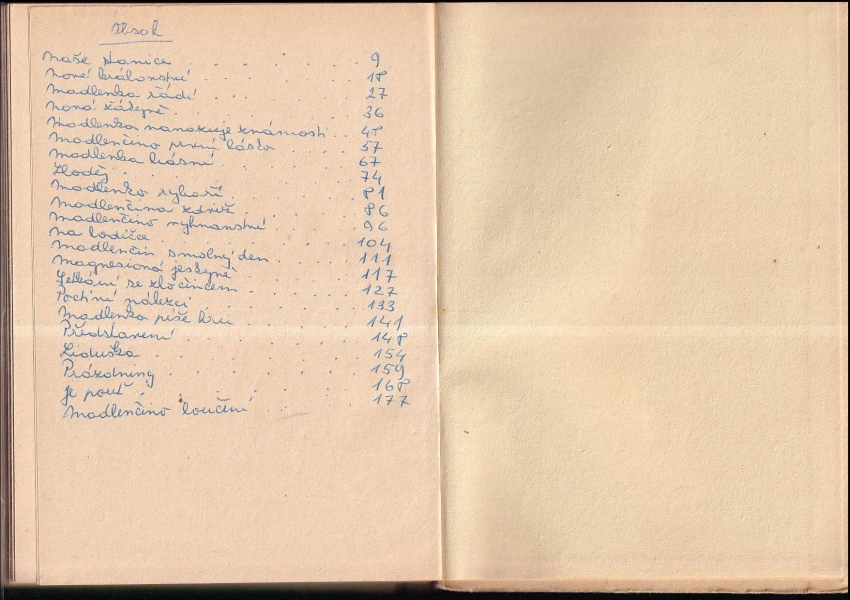 Obsah
Naše stanice . . . . . . 9
Nové království . . . . . . 18
Madlenka řádí . . . . . . 27
Nová zářezně . . . . . . 36
Madlenka navazuje známosti . . 48
Madlenčino první lásko . . . . 57
Madlenka básní . . . . . . 67
Zloděj . . . . . . 74
Madlenka rybaří . . . . . . 81
Madlenčina . . . . . . 86
Madlenčino . . . . . . 96
Na lodičce . . . . . . 104
Madlenčin smolný den . . . . 111
Magnesiová jeskyně . . . . . 117
Setkání se zločincem . . . . . 127
Poctiví nálezci . . . . . . 133
Madlenka píše hru . . . . . . 141
Představení . . . . . . 148
Liduška . . . . . . 154
Prázdniny . . . . . . 159
Je pouť . . . . . . 168
Madlenčino loučení . . . . . . 177